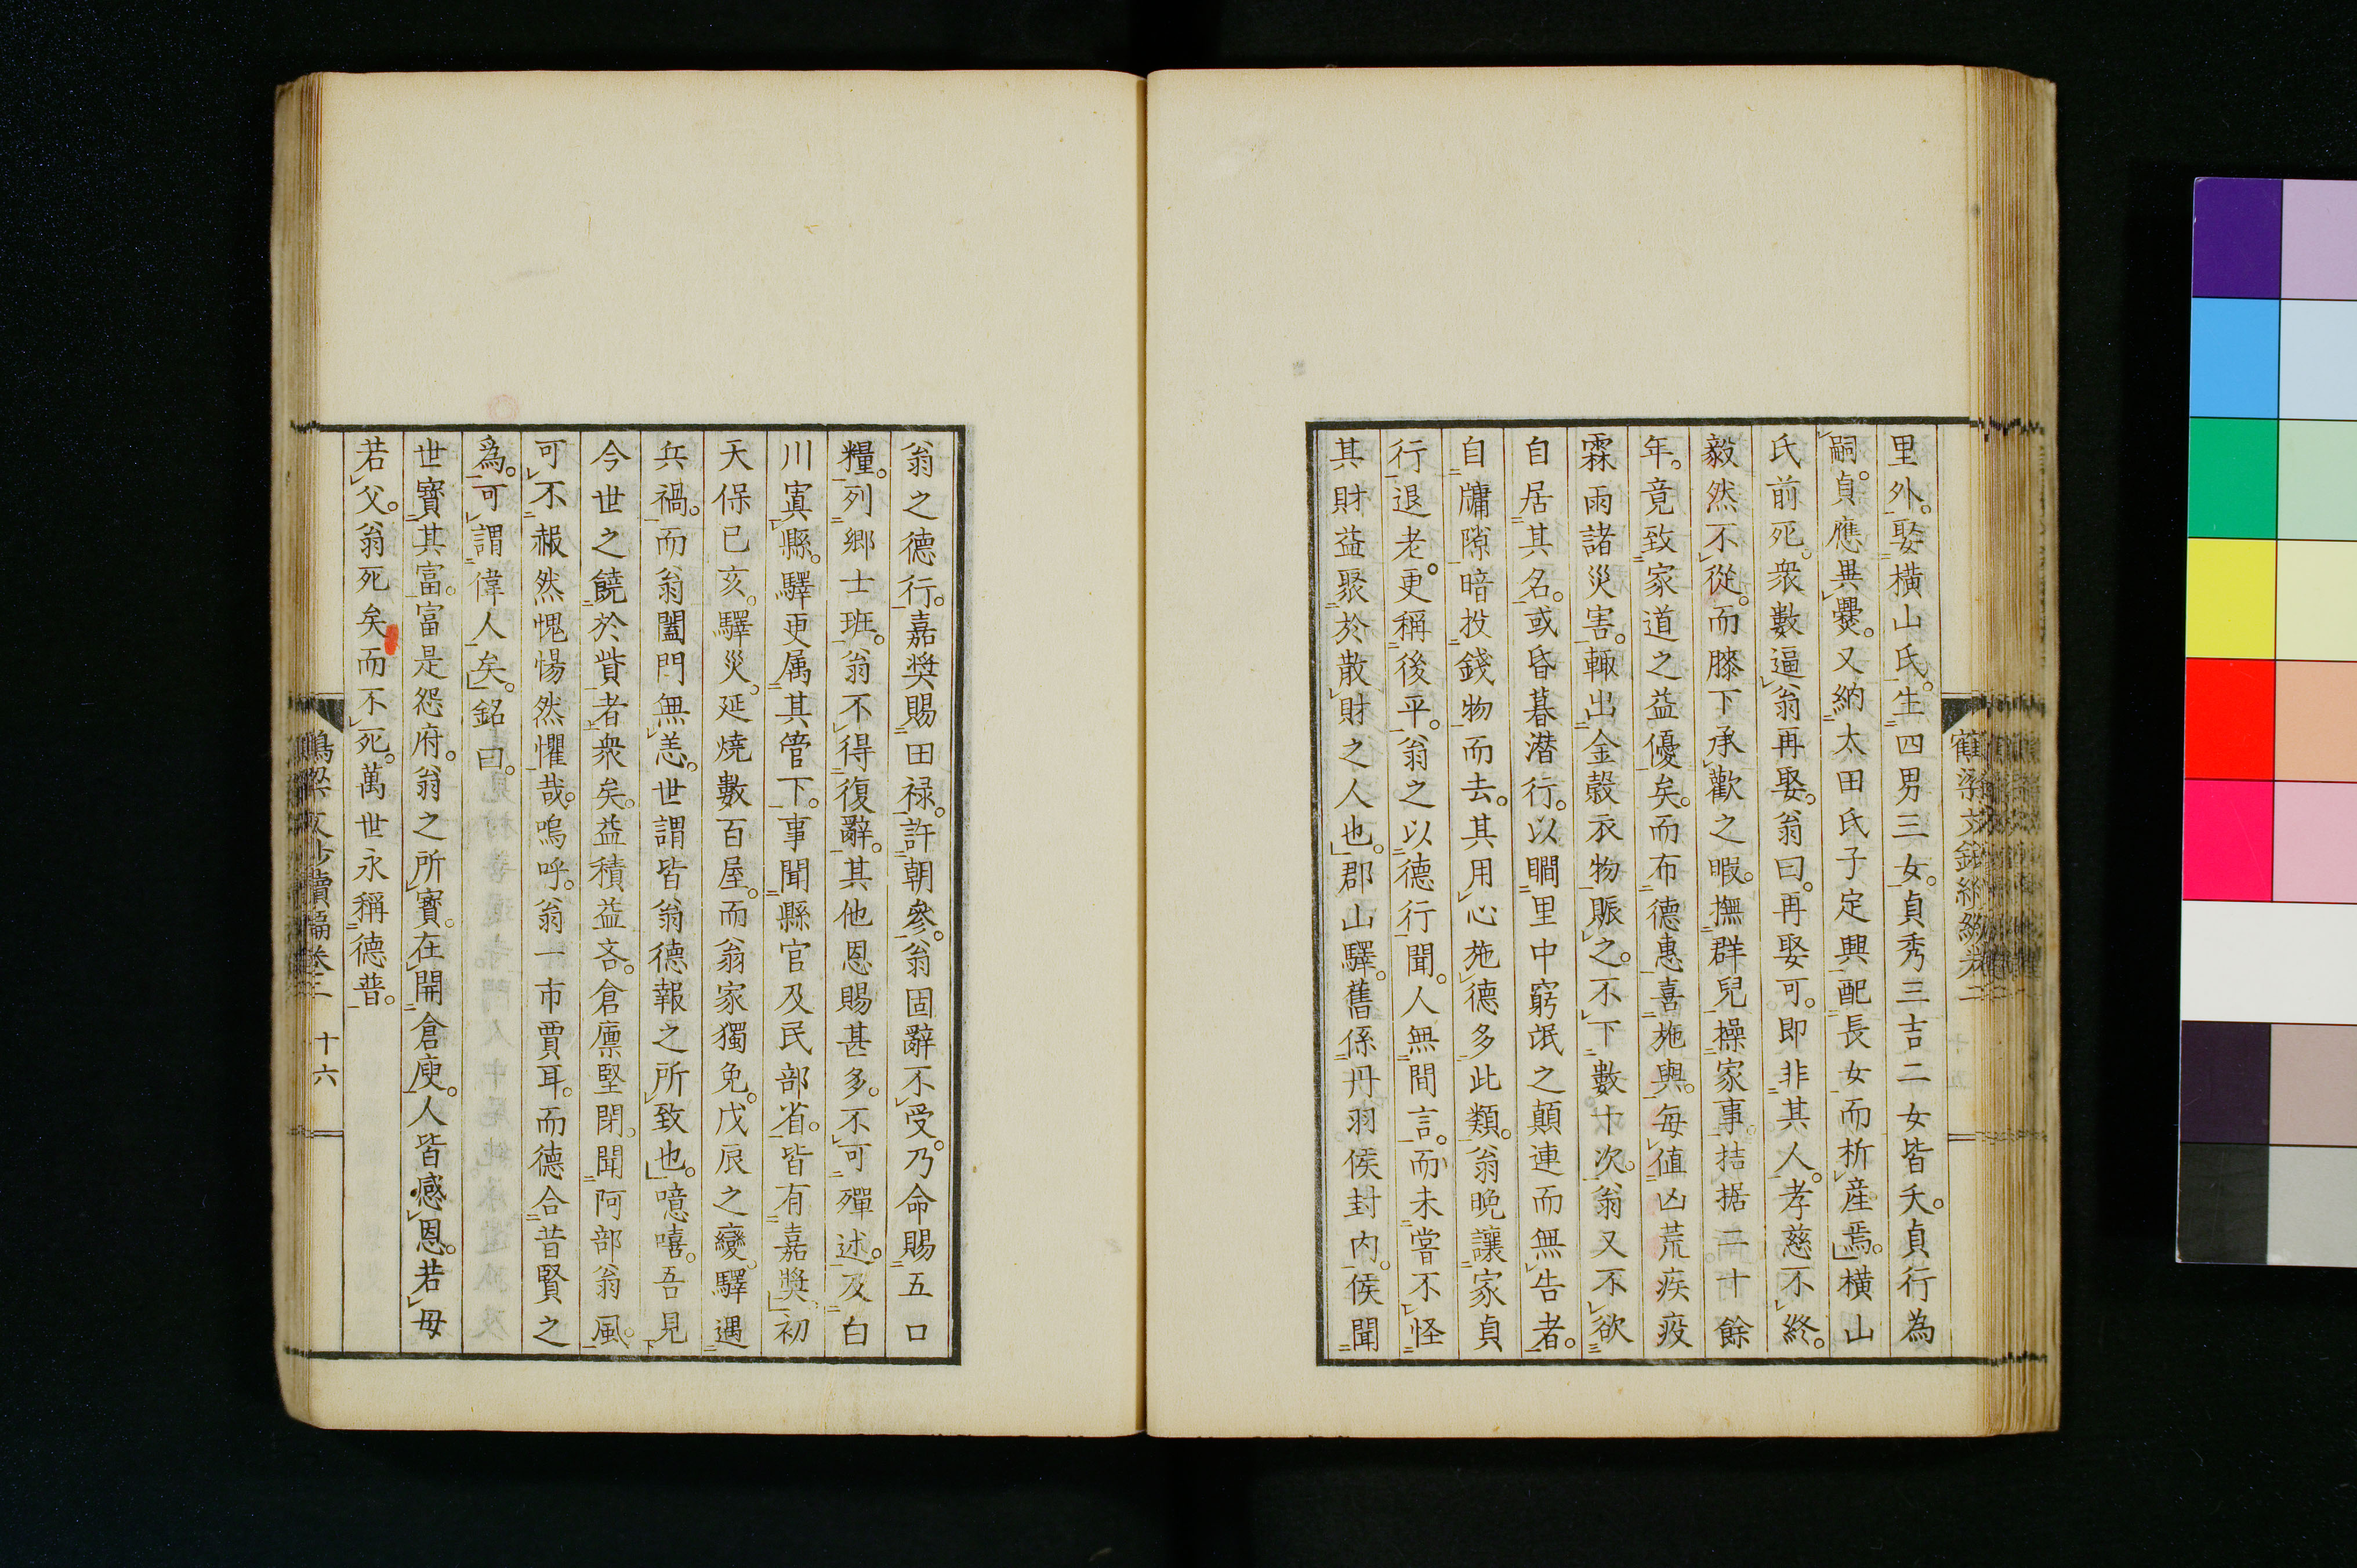 里外。娶橫山氏。生四男三女。貞秀三吉二女皆夭。貞行為
嗣。貞應異爨。又納太田氏子定興配長女而析産焉。橫山
氏前死。衆數逼翁再娶。翁曰。再娶可。即非其人。孝慈不終。
毅然不從。而膝下承歡之暇。撫群兒操家事。拮据二十餘
年。竟致家道之益優矣。而布德惠喜施與。每値凶荒疾疫
霖雨諸災害。輙出金穀衣物賑之。不下數十次。翁又不欲
自居其名。或昏暮潜行。以瞷里中窮氓之顛連而無告者。
自牖隙暗投錢物而去。其用心施德多此類。翁晚讓家貞
行退老。更稱後平。翁之以德行聞。人無間言。而未嘗不怪
其財益聚於散財之人也。郡山驛。舊係丹羽侯封内。侯聞
翁之德行。嘉奬賜田禄。許朝參。翁固辭不受。乃命賜五口
糧。列鄉士班。翁不得復辭。其他恩賜甚多。不可殫述。及白
川寘縣。驛更属其管下。事聞縣官及民部省。皆有嘉奬初
天保已亥。驛災。延燒數百屋。而翁家獨免。戊辰之變。驛遇
兵禍。而翁闔門無恙。世謂皆翁德報之所致也。噫嘻。吾見
今世之饒於貲者衆矣。益積益吝。倉廩堅閉。聞阿部翁風。
可不赧然愧惕然懼哉。嗚呼。翁一市賈耳。而德合昔賢之
為。可謂偉人矣。銘曰。
世寶其富。富是怨府。翁之所寶。在開倉庾。人皆感恩。若母
若父。翁死矣而不死。萬世永稱德普。
續編卷三 十六